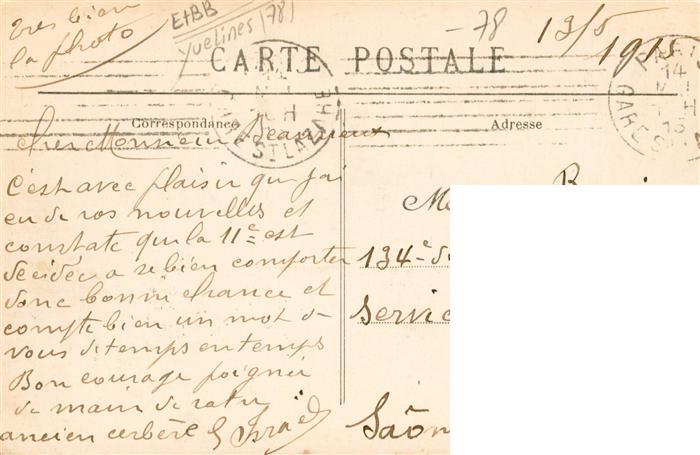 très bien
la photo
E+BB
Yvelines (78)
-78
13/5
1915
CARTE POSTALE
Correspondance
Adresse
Cher Monsieur
C'est avec plaisir que j'ai
eu de vos nouvelles et
constate que la 11e est
décidée a se bien comporter
donc bonne chance et
compte bien un mot de
vous de temps en temps
Bon courage poignée
de main de votre
ancien cerbère
134e
Servic
Saôn